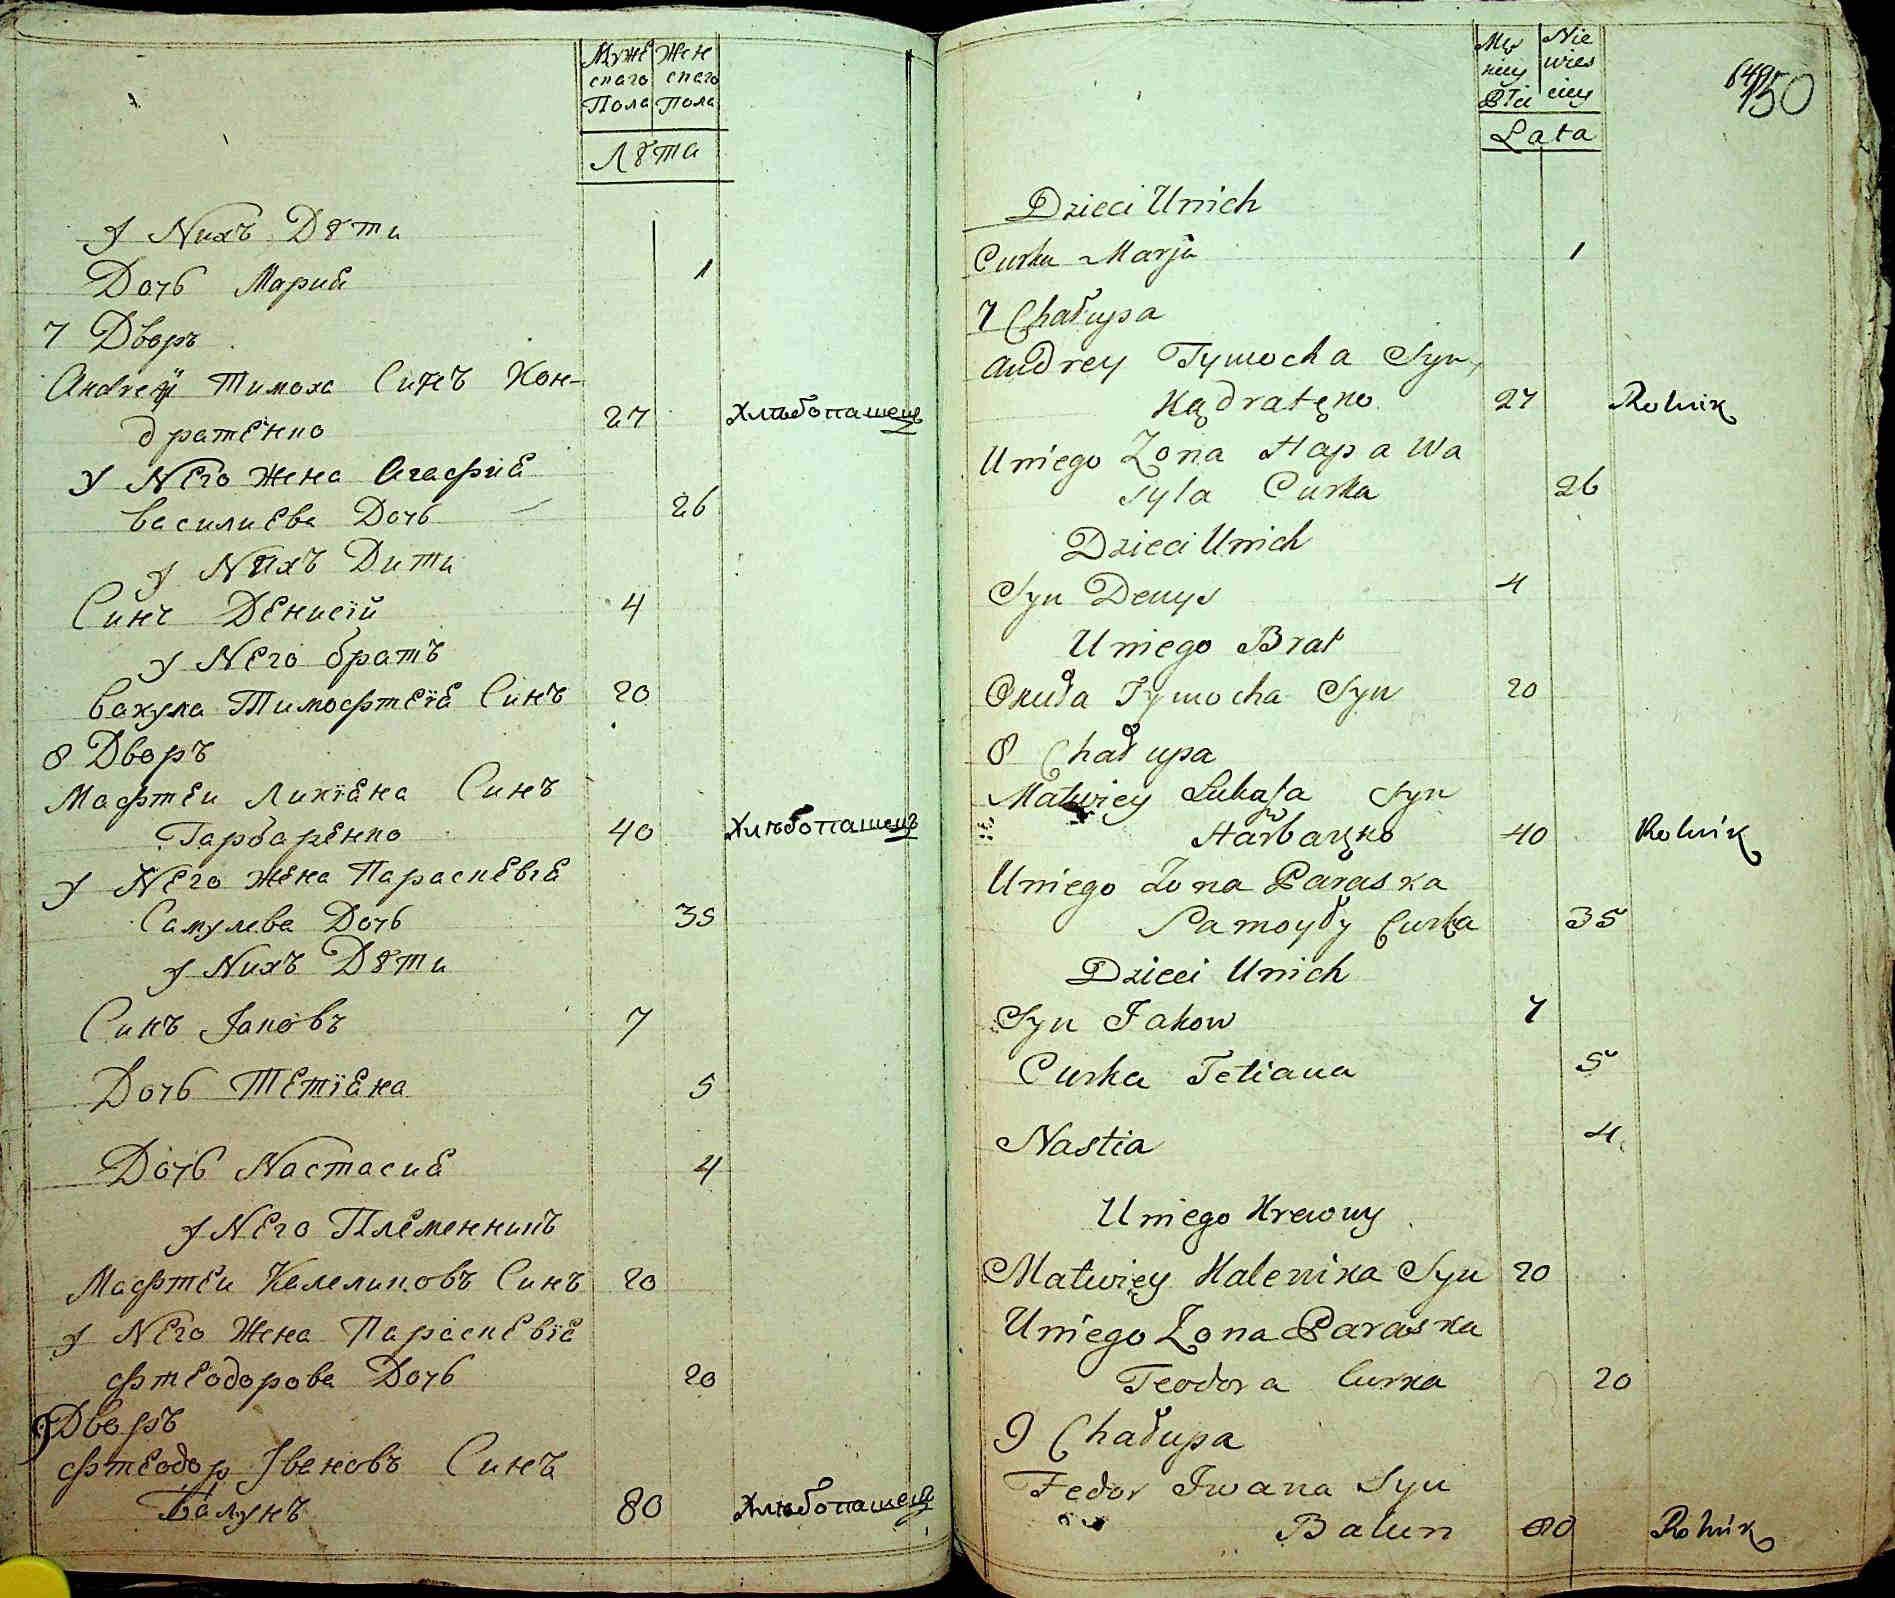 Муже Жен
скаго скаго
Пола Пола
Лѣта
У Nихъ Дѣти
Дочь Мариа 1
7 Дворъ
Андrей Тимоха Синъ Кон-
дратенко 27 Хлѣбопашецъ
У Nего жена Агафиа
василиева Дочь 26
у Nихъ Дити
Синъ Денисій 4
у Nего братъ
вакула Тимофтеïа Синъ 20
8 Дворъ
Мафтеи Лукïана Синъ
Гарбаренко 40 Хлѣбопашецъ
у Nего жена Параскевïа
Самулева Дочь 35
у Nихъ Дѣти
Синъ Jаковъ 7
Дочь Тетïана 5
Дочь Nастасиа 4
у Nего Племенникъ
Мафтеи Келеликовъ Синъ 20
у Nего Жена Параскевïа
фтеодорова Дочь 20
9 Дворъ
фтеодор Jвановъ Синъ
Балунъ 80 Хлѣбопашецъ
Mę Nie
wies
Płci
Lata
150
Dzieci Unich
Curka Marja 1
7 Chałupa
Andrey Tymocha Syn
Kądratęko 27 Rolnik
Uniego Zona Hapa Wa
syla Curka 26
Dzieci Unich
Syn Denys 4
Uniego Brat
Tymocha Syn 20
8 Chałupa
Matwiey Lukasa Syn
40 Rolnik
Uniego Zona Paraska
Samoyły Curka 35
Dzieci Unich
Syn Jakow 7
Curka Tetiana 5
Nastia 4
Uniego Krewny
Matwiey Kalenika Syn 20
Uniego Zona Paraska
Teodora Curka 20
9 Chałupa
Fedor Iwana Syn
Balun 80 Rolnik